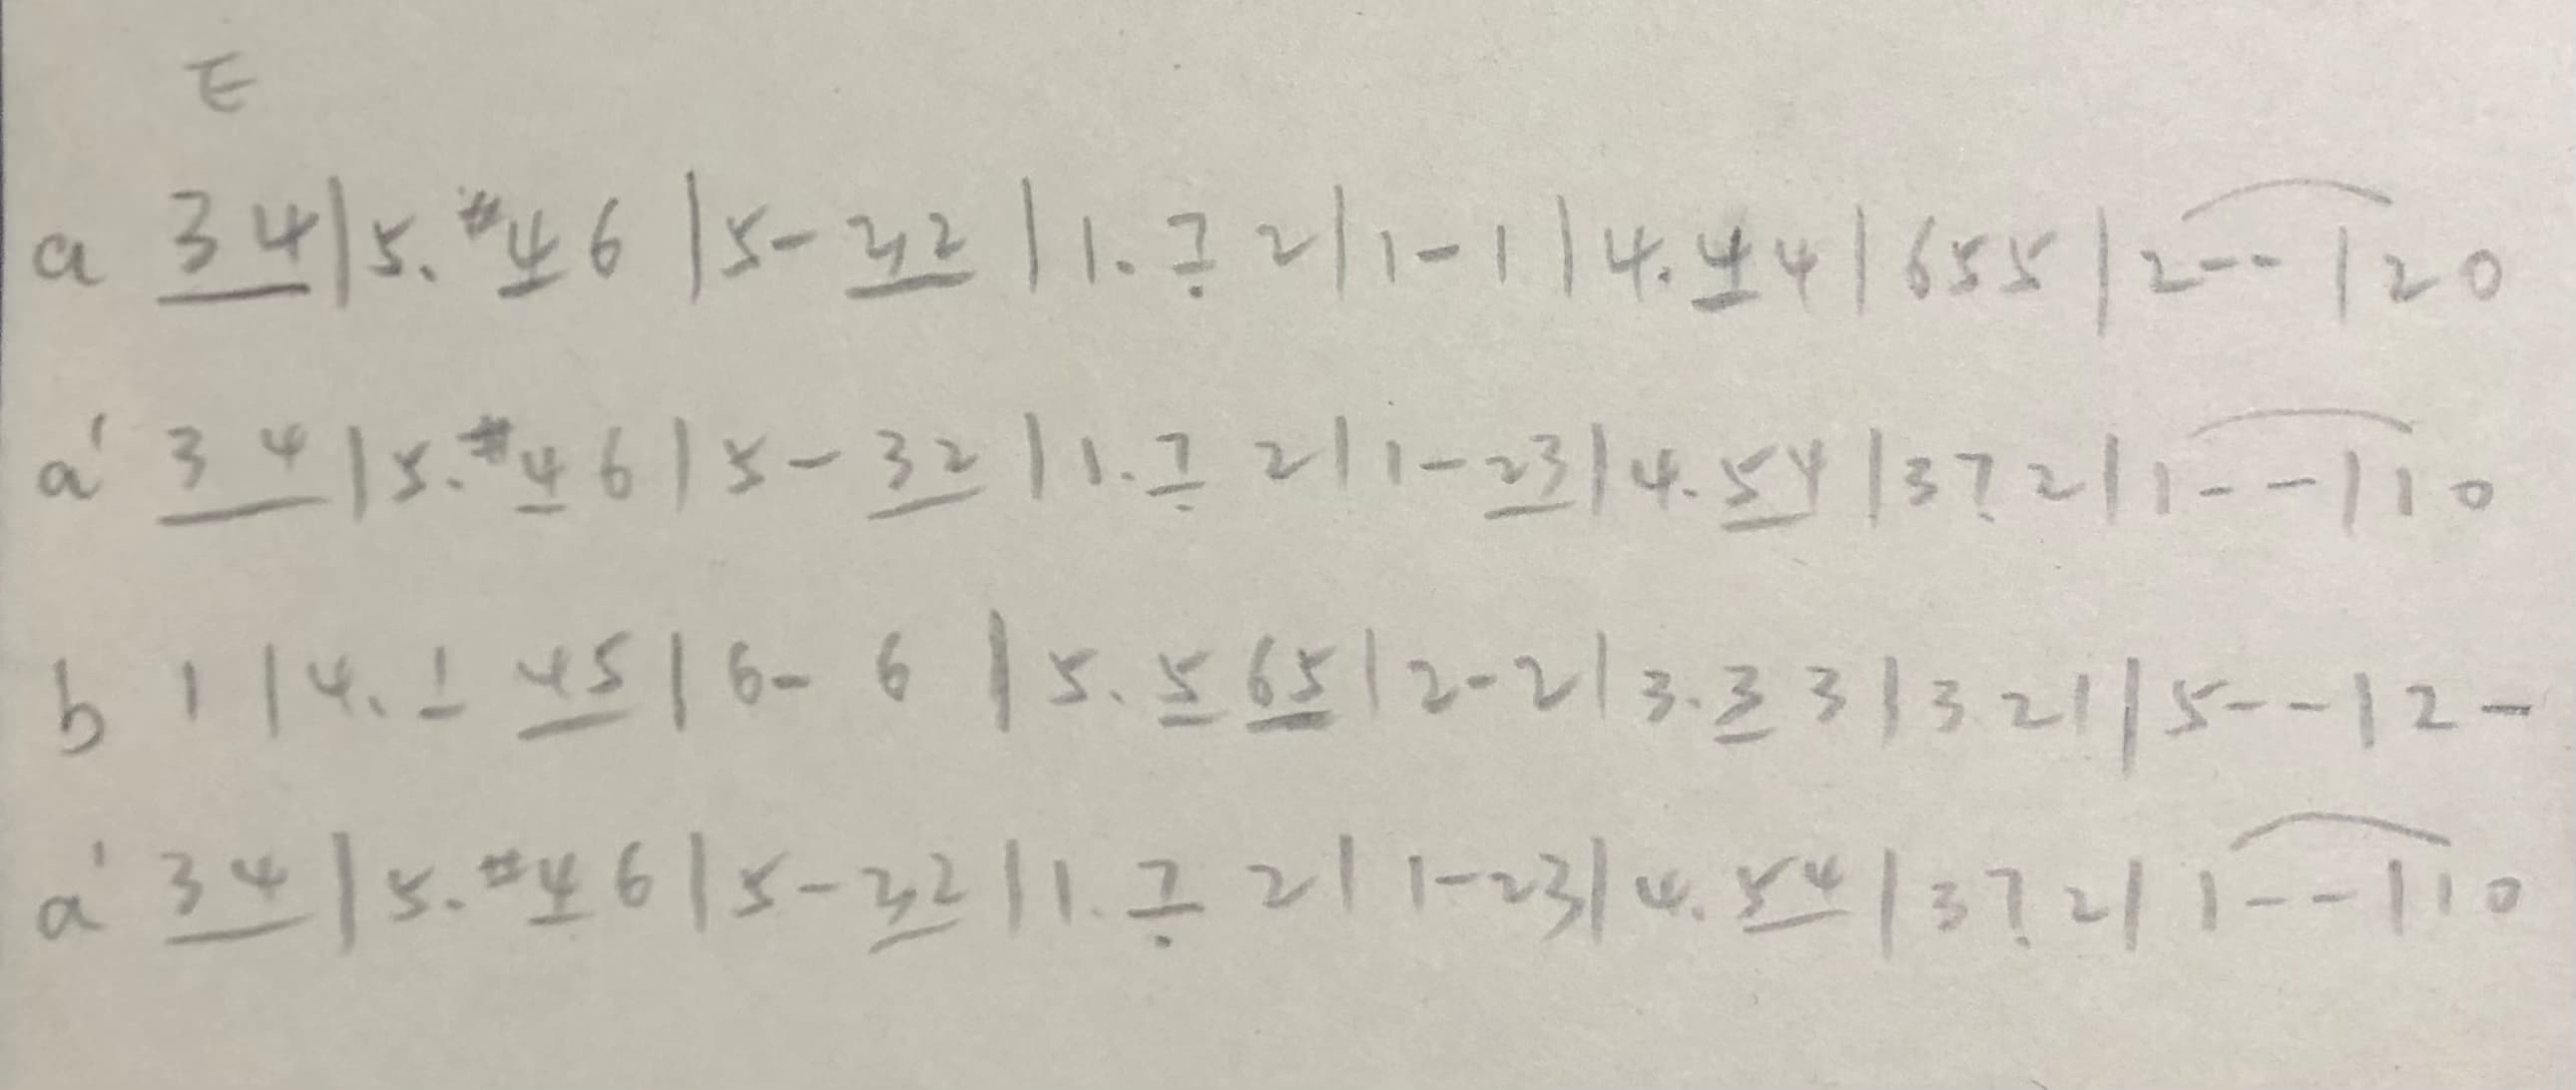 E
a 34|5.#46|5-32|1.7̣2|1-1|4.44|655|2--|20
a' 34|5.#46|5-32|1.7̣2|1-23|4.54|37̣2|1--|10
b 1|4.145|6-6|5.565|2-2|3.33|321|5--|2-
a' 34|5.#46|5-32|1.7̣2|1-23|4.54|37̣2|1--|10